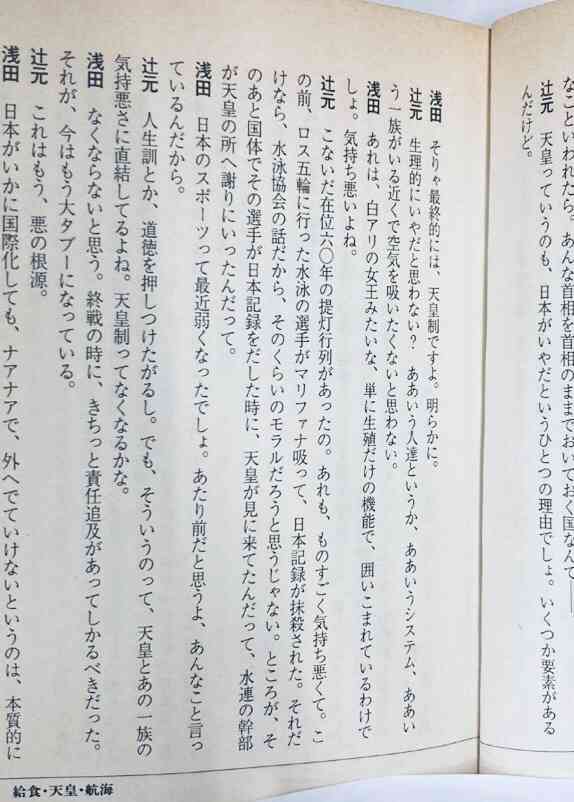 なことといわれたら。あんな首相を首相のままでおいておく国なんて──
辻元　天皇っていうのも、日本がいやだというひとつの理由でしょ。いくつか要素がある
んだけど。
浅田　そりゃ最終的には、天皇制ですよ。明らかに。
辻元　生理的にいやだと思わない？　ああいう人達というか、ああいうシステム、ああい
う一族がいる近くで空気を吸いたくないと思わない。
浅田　あれは、白アリの女王みたいな、単に生殖だけの機能で、囲いこまれているわけで
しょ。気持ち悪いよね。
辻元　こないだ在位六〇年の提灯行列があったの。あれも、ものすごく気持ち悪くて。こ
の前、ロス五輪に行った水泳の選手がマリファナ吸って、日本記録が抹殺された。それだ
けなら、水泳協会の話だから、そのくらいのモラルだろうと思うじゃない。ところが、そ
のあと国体でその選手が日本記録をだした時に、天皇が見に来てたんだって、水連の幹部
が天皇の所へ謝りにいったんだって。
浅田　日本のスポーツって最近弱くなったでしょ。あたり前だと思うよ、あんなこと言っ
ているんだから。
辻元　人生訓とか、道徳を押しつけたがるし。でも、そういうのって、天皇とあの一族の
気持悪さに直結してるよね。天皇制ってなくなるかな。
浅田　なくならないと思う。終戦の時に、きちっと責任追及があってしかるべきだった。
それが、今はもう大タブーになっている。
辻元　これはもう、悪の根源。
浅田　日本がいかに国際化しても、ナアナアで、外へでていけないというのは、本質的に
給食・天皇・航海